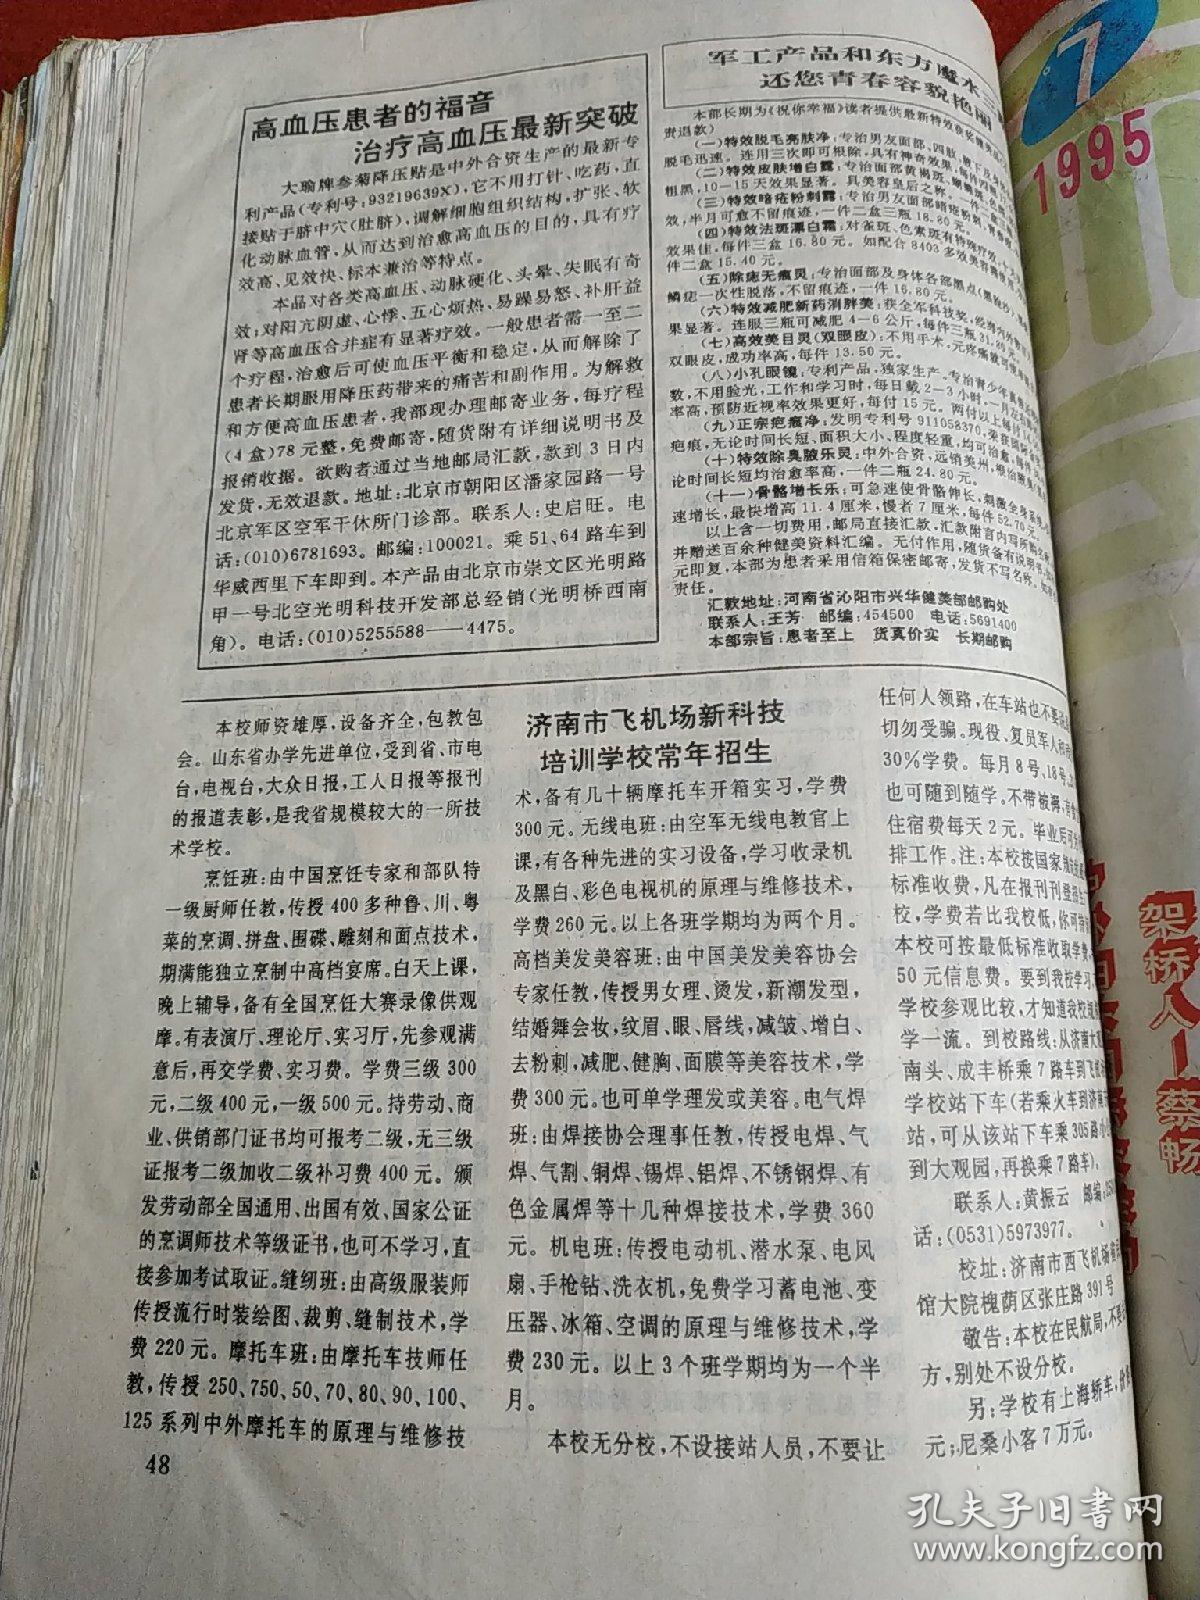 高血压患者的福音
治疗高血压最新突破
大瑜牌参菊降压贴是中外合资生产的最新专
利产品(专利号:93219639X),它不用打针、吃药,直
接贴于脐中穴(肚脐),调解细胞组织结构,扩张、软
化动脉血管,从而达到治愈高血压的目的,具有疗
效高、见效快、标本兼治等特点。
本品对各类高血压、动脉硬化、头晕、失眠有奇
效;对阳亢阴虚、心悸、五心烦热、易躁易怒、补肝益
肾等高血压合并症有显著疗效。一般患者需一至二
个疗程,治愈后可使血压平衡和稳定,从而解除了
患者长期服用降压药带来的痛苦和副作用。为解救
和方便高血压患者,我部现办理邮寄业务,每疗程
(4盒)78元整,免费邮寄,随货附有详细说明书及
报销收据。欲购者通过当地邮局汇款,款到3日内
发货,无效退款。地址:北京市朝阳区潘家园路一号
北京军区空军干休所门诊部。联系人:史启旺。电
话:(010)6781693。邮编:100021。乘51、64路车到
华威西里下车即到。本产品由北京市崇文区光明路
甲一号北空光明科技开发部总经销(光明桥西南
角)。电话:(010)5255588——4475。
军工产品和东方魔水三
还您青春容貌艳丽
本部长期为《祝你幸福》读者提供最新特效
责退款)
(一)特效脱毛亮肤净:专治男友面部、四肢、腋下
脱毛迅速。连用三次即可根除,具有神奇效果,每件
(二)特效皮肤增白露:专治面部黄褐斑、蝴蝶斑
粗黑,10-15天效果显著。具美容皇后之称,一件
(三)特效暗疮粉刺露:专治男友面部暗疮粉刺、青春
效,半月可愈不留痕迹,一件二盒三瓶18.80元。
(四)特效法斑漂白霜:对雀斑、色素斑有特殊疗效
效果佳,每件三盒16.80元。如配合8403多效美容
件二盒15.40元。
(五)除痣无痕灵:专治面部及身体各部黑点(黑
鳞痣一次性脱落,不留痕迹,一件16.80元。
(六)特效减肥新药消胖美:获全军科技奖,经海内外
果显著。连服三瓶可减肥4-6公斤,每件三瓶31.80元。
(七)高效美目灵(双眼皮):不用手术,无疼痛
双眼皮,成功率高,每件13.50元。
(八)小孔眼镜:专利产品,独家生产。专治青少年
数,不用验光,工作和学习时,每日戴2-3小时,一月左右
率高,预防近视率效果更好,每付15元。两付以上每付
(九)正宗疤痕净:发明专利号911058370,荣获国际
疤痕,无论时间长短、面积大小、程度轻重,均可治愈,每件
(十)特效除臭腋乐灵:中外合资,远销美州,根治腋臭
论时间长短均治愈率高,一件二瓶24.80元。
(十一)骨骼增长乐:可急速使骨骼伸长,刺激全身
速增长,最快增高11.4厘米,慢者7厘米,每件52.70元。
以上含一切费用,邮局直接汇款,汇款附言内写所购
并赠送百余种健美资料汇编。无付作用,随货备有说明书
元即复,本部为患者采用信箱保密邮寄,发货不写名称
责任。
汇款地址:河南省沁阳市兴华健美部邮购处
联系人:王芳 邮编:454500 电话:5691400
本部宗旨:患者至上 货真价实 长期邮购
济南市飞机场新科技
培训学校常年招生
本校师资雄厚,设备齐全,包教包
会。山东省办学先进单位,受到省、市电
台,电视台,大众日报,工人日报等报刊
的报道表彰,是我省规模较大的一所技
术学校。
烹饪班:由中国烹饪专家和部队特
一级厨师任教,传授400多种鲁、川、粤
菜的烹调、拼盘、围碟、雕刻和面点技术,
期满能独立烹制中高档宴席。白天上课,
晚上辅导,备有全国烹饪大赛录像供观
摩。有表演厅、理论厅、实习厅,先参观满
意后,再交学费、实习费。学费三级300
元,二级400元,一级500元。持劳动、商
业、供销部门证书均可报考二级,无三级
证报考二级加收二级补习费400元。颁
发劳动部全国通用、出国有效、国家公证
的烹调师技术等级证书,也可不学习,直
接参加考试取证。缝纫班:由高级服装师
传授流行时装绘图、裁剪、缝制技术,学
费220元。摩托车班:由摩托车技师任
教,传授250、750、50、70、80、90、100、
125系列中外摩托车的原理与维修技
术,备有几十辆摩托车开箱实习,学费
300元。无线电班:由空军无线电教官上
课,有各种先进的实习设备,学习收录机
及黑白、彩色电视机的原理与维修技术,
学费260元。以上各班学期均为两个月。
高档美发美容班:由中国美发美容协会
专家任教,传授男女理、烫发,新潮发型,
结婚舞会妆,纹眉、眼、唇线,减皱、增白、
去粉刺,减肥、健胸、面膜等美容技术,学
费300元。也可单学理发或美容。电气焊
班:由焊接协会理事任教,传授电焊、气
焊、气割、铜焊、锡焊、铝焊、不锈钢焊、有
色金属焊等十几种焊接技术,学费360
元。机电班:传授电动机、潜水泵、电风
扇、手枪钻、洗衣机,免费学习蓄电池、变
压器、冰箱、空调的原理与维修技术,学
费230元。以上3个班学期均为一个半
月。
本校无分校,不设接站人员,不要让
任何人领路,在车站也不要
切勿受骗。现役、复员军人和
30%学费。每月8号、18号、
也可随到随学。不带被褥,
住宿费每天2元。毕业后可
排工作。注:本校按国家
标准收费,凡在报刊刊登招生
校,学费若比我校低,你可
本校可按最低标准收取学费,
50元信息费。要到我校学习,
学校参观比较,才知道我校
学一流。到校路线:从济南
南头、成丰桥乘7路车到飞
学校站下车(若乘火车到济南
站,可从该站下车乘305路
到大观园,再换乘7路车)。
联系人:黄振云 邮编:
话:(0531)5973977。
校址:济南市西飞机场
馆大院槐荫区张庄路391号
敬告:本校在民航局,不要
方,别处不设分校。
另:学校有上海轿车,
元;尼桑小客7万元。
48
7
1995
架桥人—蔡畅
孔夫子旧书网
www.kongfz.com